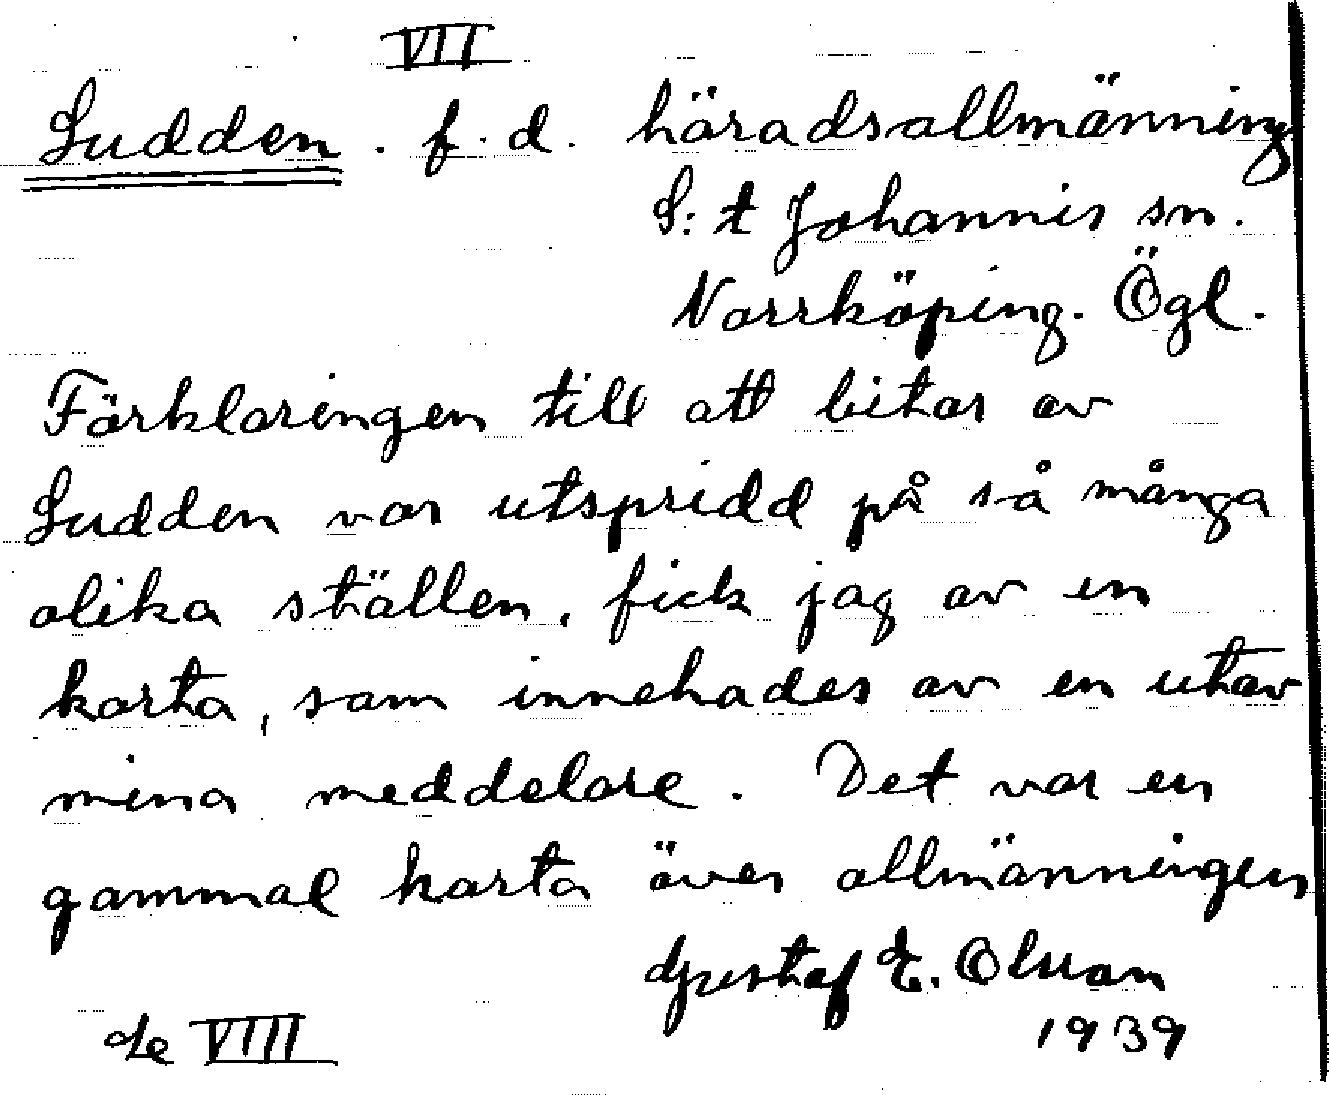 VII
Sudden. f.d. häradsallmänning
S:t Johannis sn.
Norrköping. Ögl.
Förklaringen till att bitar av
Sudden var utspridd på så många
olika ställen, fick jag av en
karta, som innehades av en utav
mina meddelare. Det var en
gammal karta över allmänningen
Gustaf E. Olsson
1939
se VIII